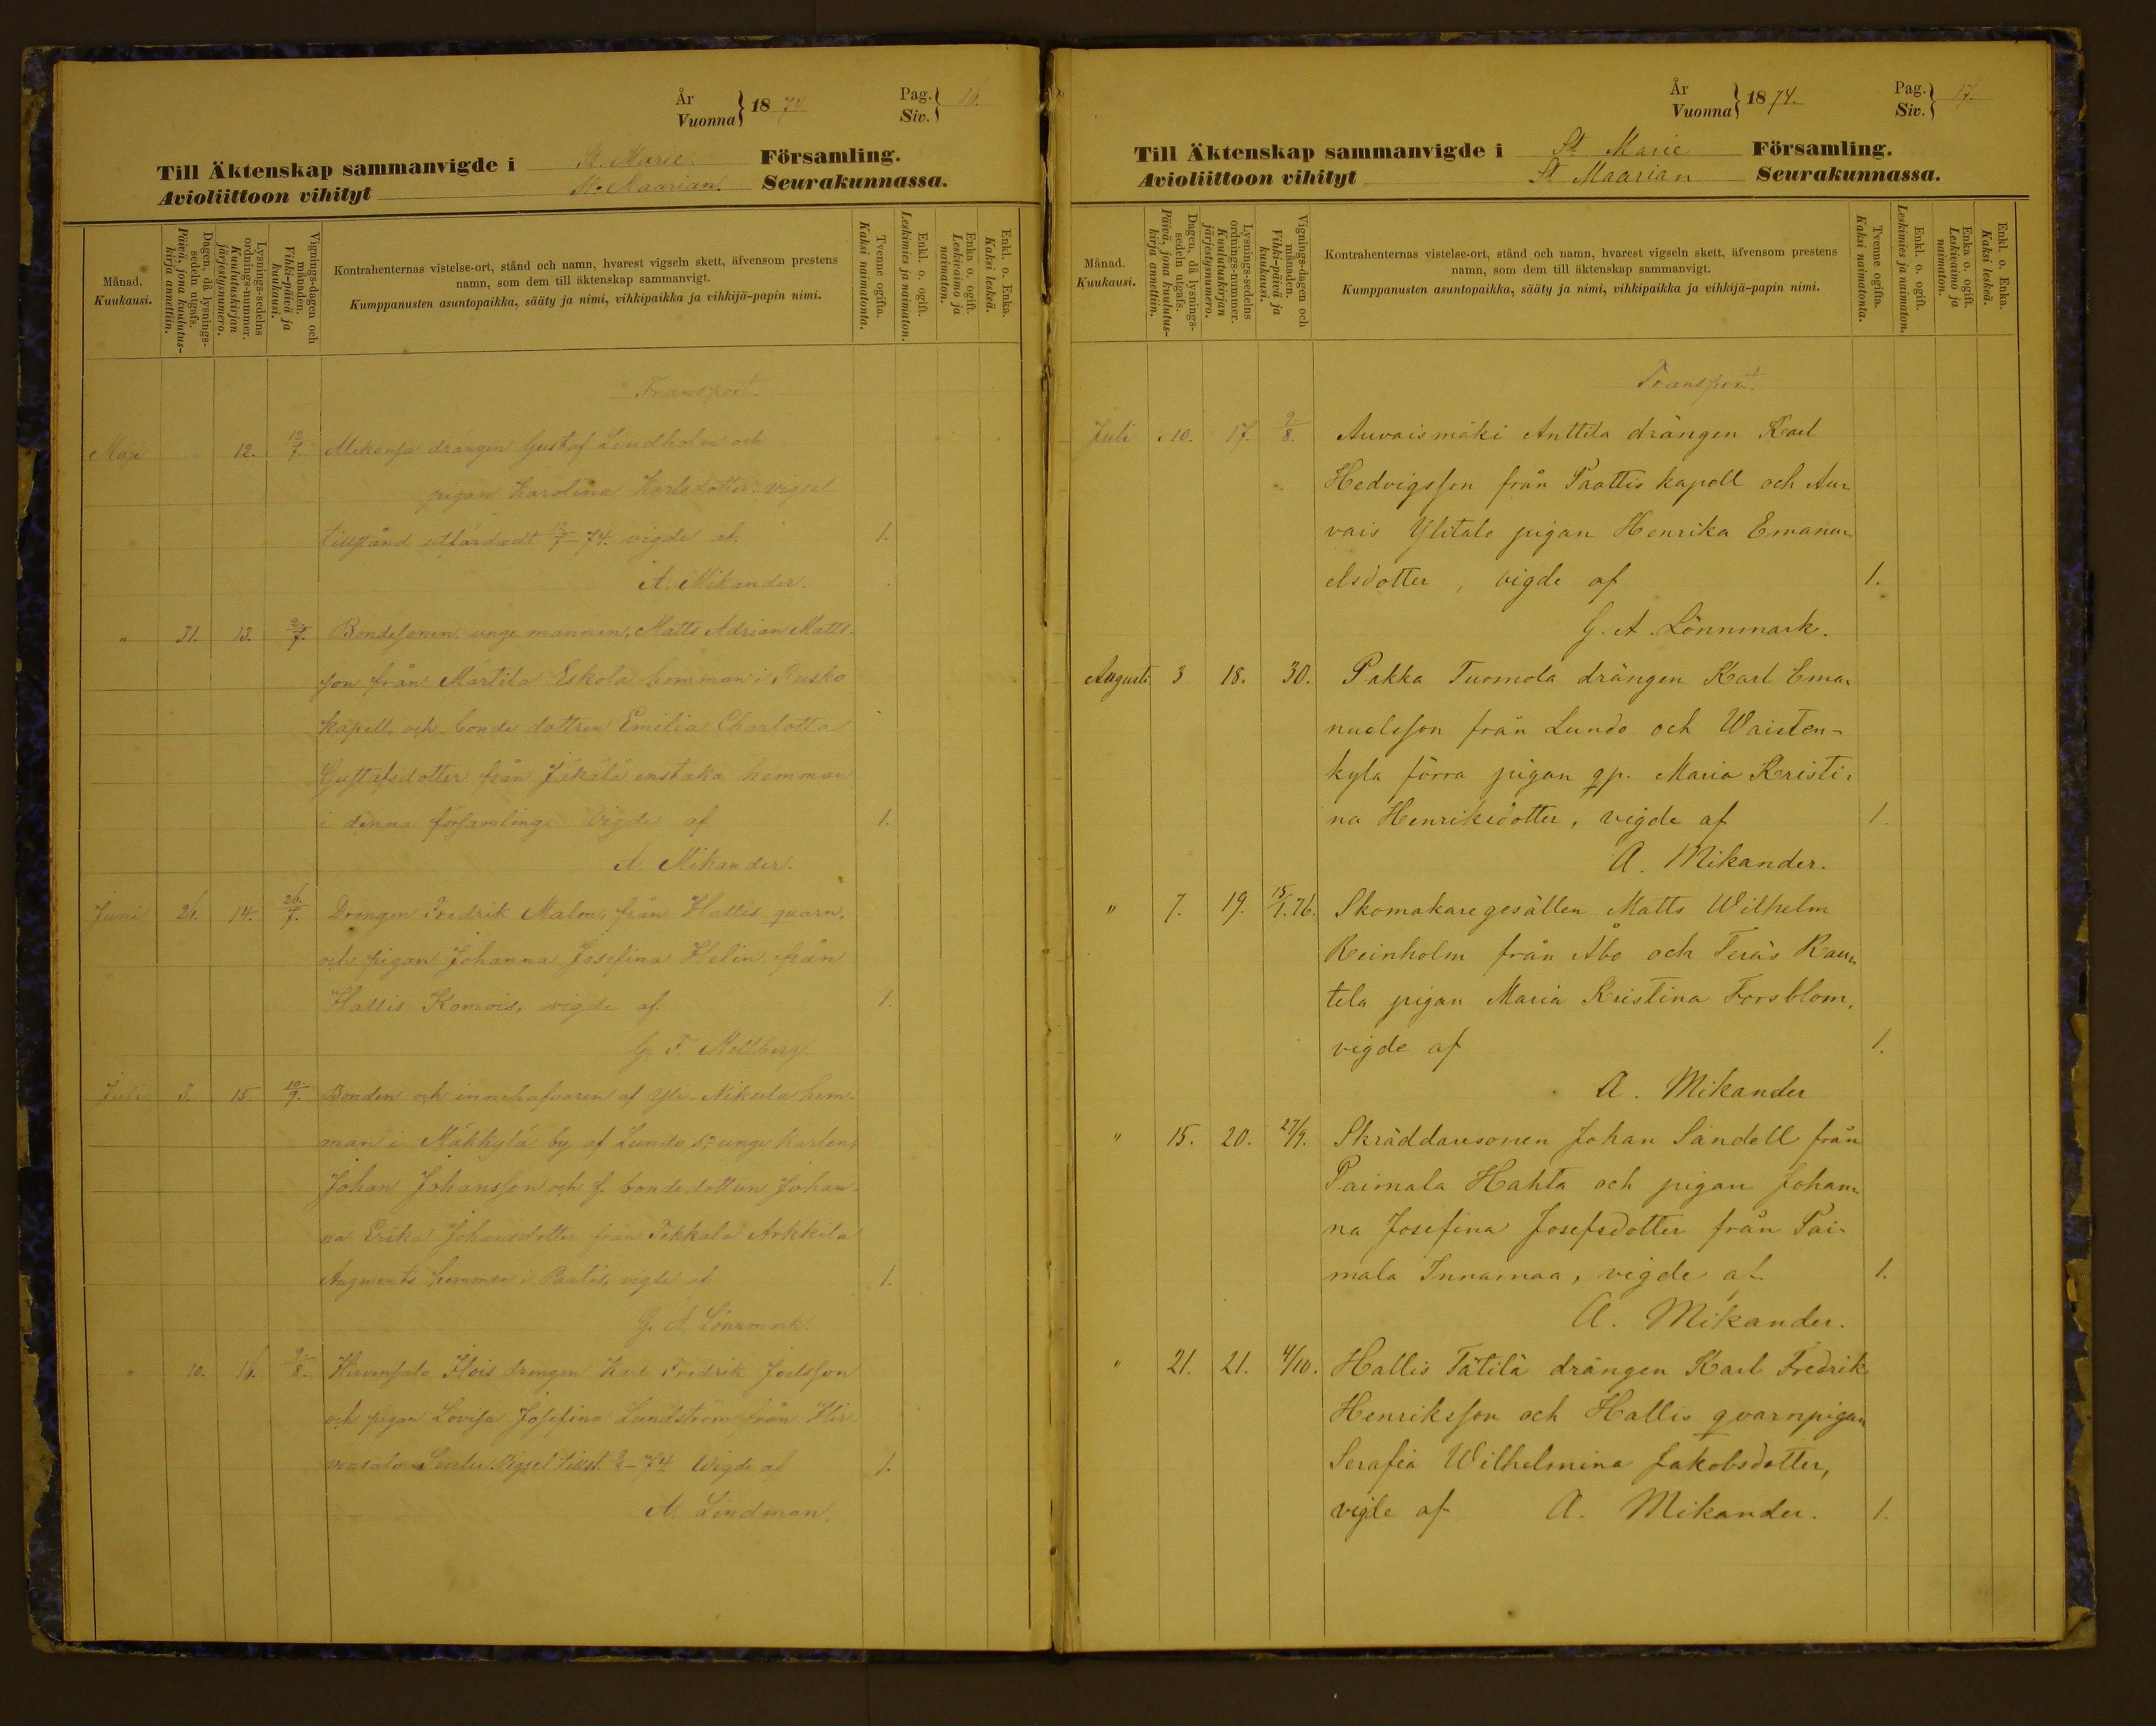 År
Vuonna } 18 74.
Pag.
Siv. } 16.
Till Äktenskap sammanvigde i St. Marie Församling.
Avioliittoon vihityt St. Maarian Seurakunnassa.
Månad.
Kuukausi.
Dagen, då lysnings-
sedeln utgafs.
Päivä, jona kuulutus-
kirja annettiin.
Lysnings-sedelns
ordnings-nummer.
Kuulutuskirjan
järjestysnumero.
Vignings-dagen och
månaden.
Vihki-päivä ja
kuukausi.
Kontrahenternas vistelse-ort, stånd och namn, hvarest vigseln skett, äfvensom prestens
namn, som dem till äktenskap sammanvigt.
Kumppanusten asuntopaikka, sääty ja nimi, vihkipaikka ja vihkijä-papin nimi.
Tvenne ogifta.
Kaksi naimatonta.
Enkl. o. ogift.
Leskimies ja naimaton.
Enka o. ogift.
Leskivaimo ja
naimaton.
Enkl. o. Enka.
Kaksi leskeä.
Transport.
Maji 12. 12/7 drängen Gustaf Lindholm och
pigan Karolina Karlsdotter vigsel
tillstånd utfärdadt 12/7 - 74. vigde af 1.
A. Mikander.
" 31. 13. 2/7. Bondesonen unge mannen, Matts Adrian Matts-
son från Märtila Eskola hemman i Rusko
kapell, och bonde dottren Emilia Charlotta
Gustafsdotter från Jäkälä enstaka hemman
i denna församling. Vigde af 1.
A. Mikander.
Juni 26. 14. 26/7. Drengen Fredrik Malm, från Hallis qvarn,
och pigan Johanna Josefina Helin från
Hallis Komois, vigde af 1.
G. F. Mellberg
Juli 3. 15. 10/9. Bonden och innehafvaren af Yli-Nikula hem-
man i Mäkkylä by af Lundo sn unge karlen,
Johan Johansson och f. bondedottren Johan-
na Erika Johansdotter från Tekkala Arkkila
Augments hemman i Paatis, vigde af 1.
G. A. Lönnmark.
" 10. 16. 9/8. Hirvensalo drengen Karl Fredrik Joelsson
och pigan Lovisa Josefina Lundström från Hir-
vensalo Vigsel tillst. - 74. Wigde af 1.
A. Lindman.
År
Vuonna } 18 74.
Pag.
Siv. } 17.
Till Äktenskap sammanvigde i St. Marie Församling.
Avioliittoon vihityt St Maarian Seurakunnassa.
Månad.
Kuukausi.
Dagen, då lysnings-
sedeln utgafs.
Päivä, jona kuulutus-
kirja annettiin.
Lysnings-sedelns
ordnings-nummer.
Kuulutuskirjan
järjestysnumero.
Vignings-dagen och
månaden.
Vihki-päivä ja
kuukausi.
Kontrahenternas vistelse-ort, stånd och namn, hvarest vigseln skett, äfvensom prestens
namn, som dem till äktenskap sammanvigt.
Kumppanusten asuntopaikka, sääty ja nimi, vihkipaikka ja vihkijä-papin nimi.
Tvenne ogifta.
Kaksi naimatonta.
Enkl. o. ogift.
Leskimies ja naimaton.
Enka o. ogift.
Leskivaimo ja
naimaton.
Enkl. o. Enka.
Kaksi leskeä.
Transport.
Juli 10. 17. 9/8. Auvaismäki Anttila drängen Karl
Hedvigsson från Paattis kapell och Au-
vais Ylitalo pigan Henrika Emanu-
elsdotter, vigde af 1.
G. A. Lönnmark.
Augusti 3 18. 30. Pakka Tuomola drängen Karl Ema-
nuelsson från Lundo och Waisten-
kylä förra pigan qp. Maria Kristi-
na Henriksdotter, vigde af 1.
A. Mikander.
" 7. 19. 15/1.76. Skomakaregesällen Matts Wilhelm
Reinholm från Åbo och Teräs Rau-
tela pigan Maria Kristina Forsblom,
vigde af 1.
A. Mikander
" 15. 20. 27/9. Skräddaresonen Johan Sandell från
Paimala Hahta och pigan Johan-
na Josefina Josefsdotter från Pai-
mala Innamaa, vigde af 1.
A. Mikander.
" 21. 21. 4/10. Hallis Tätilä drängen Karl Fredrik
Henriksson och Hallis qvarnpigan
Serafia Wilhelmina Jakobsdotter,
vigde af A. Mikander. 1.